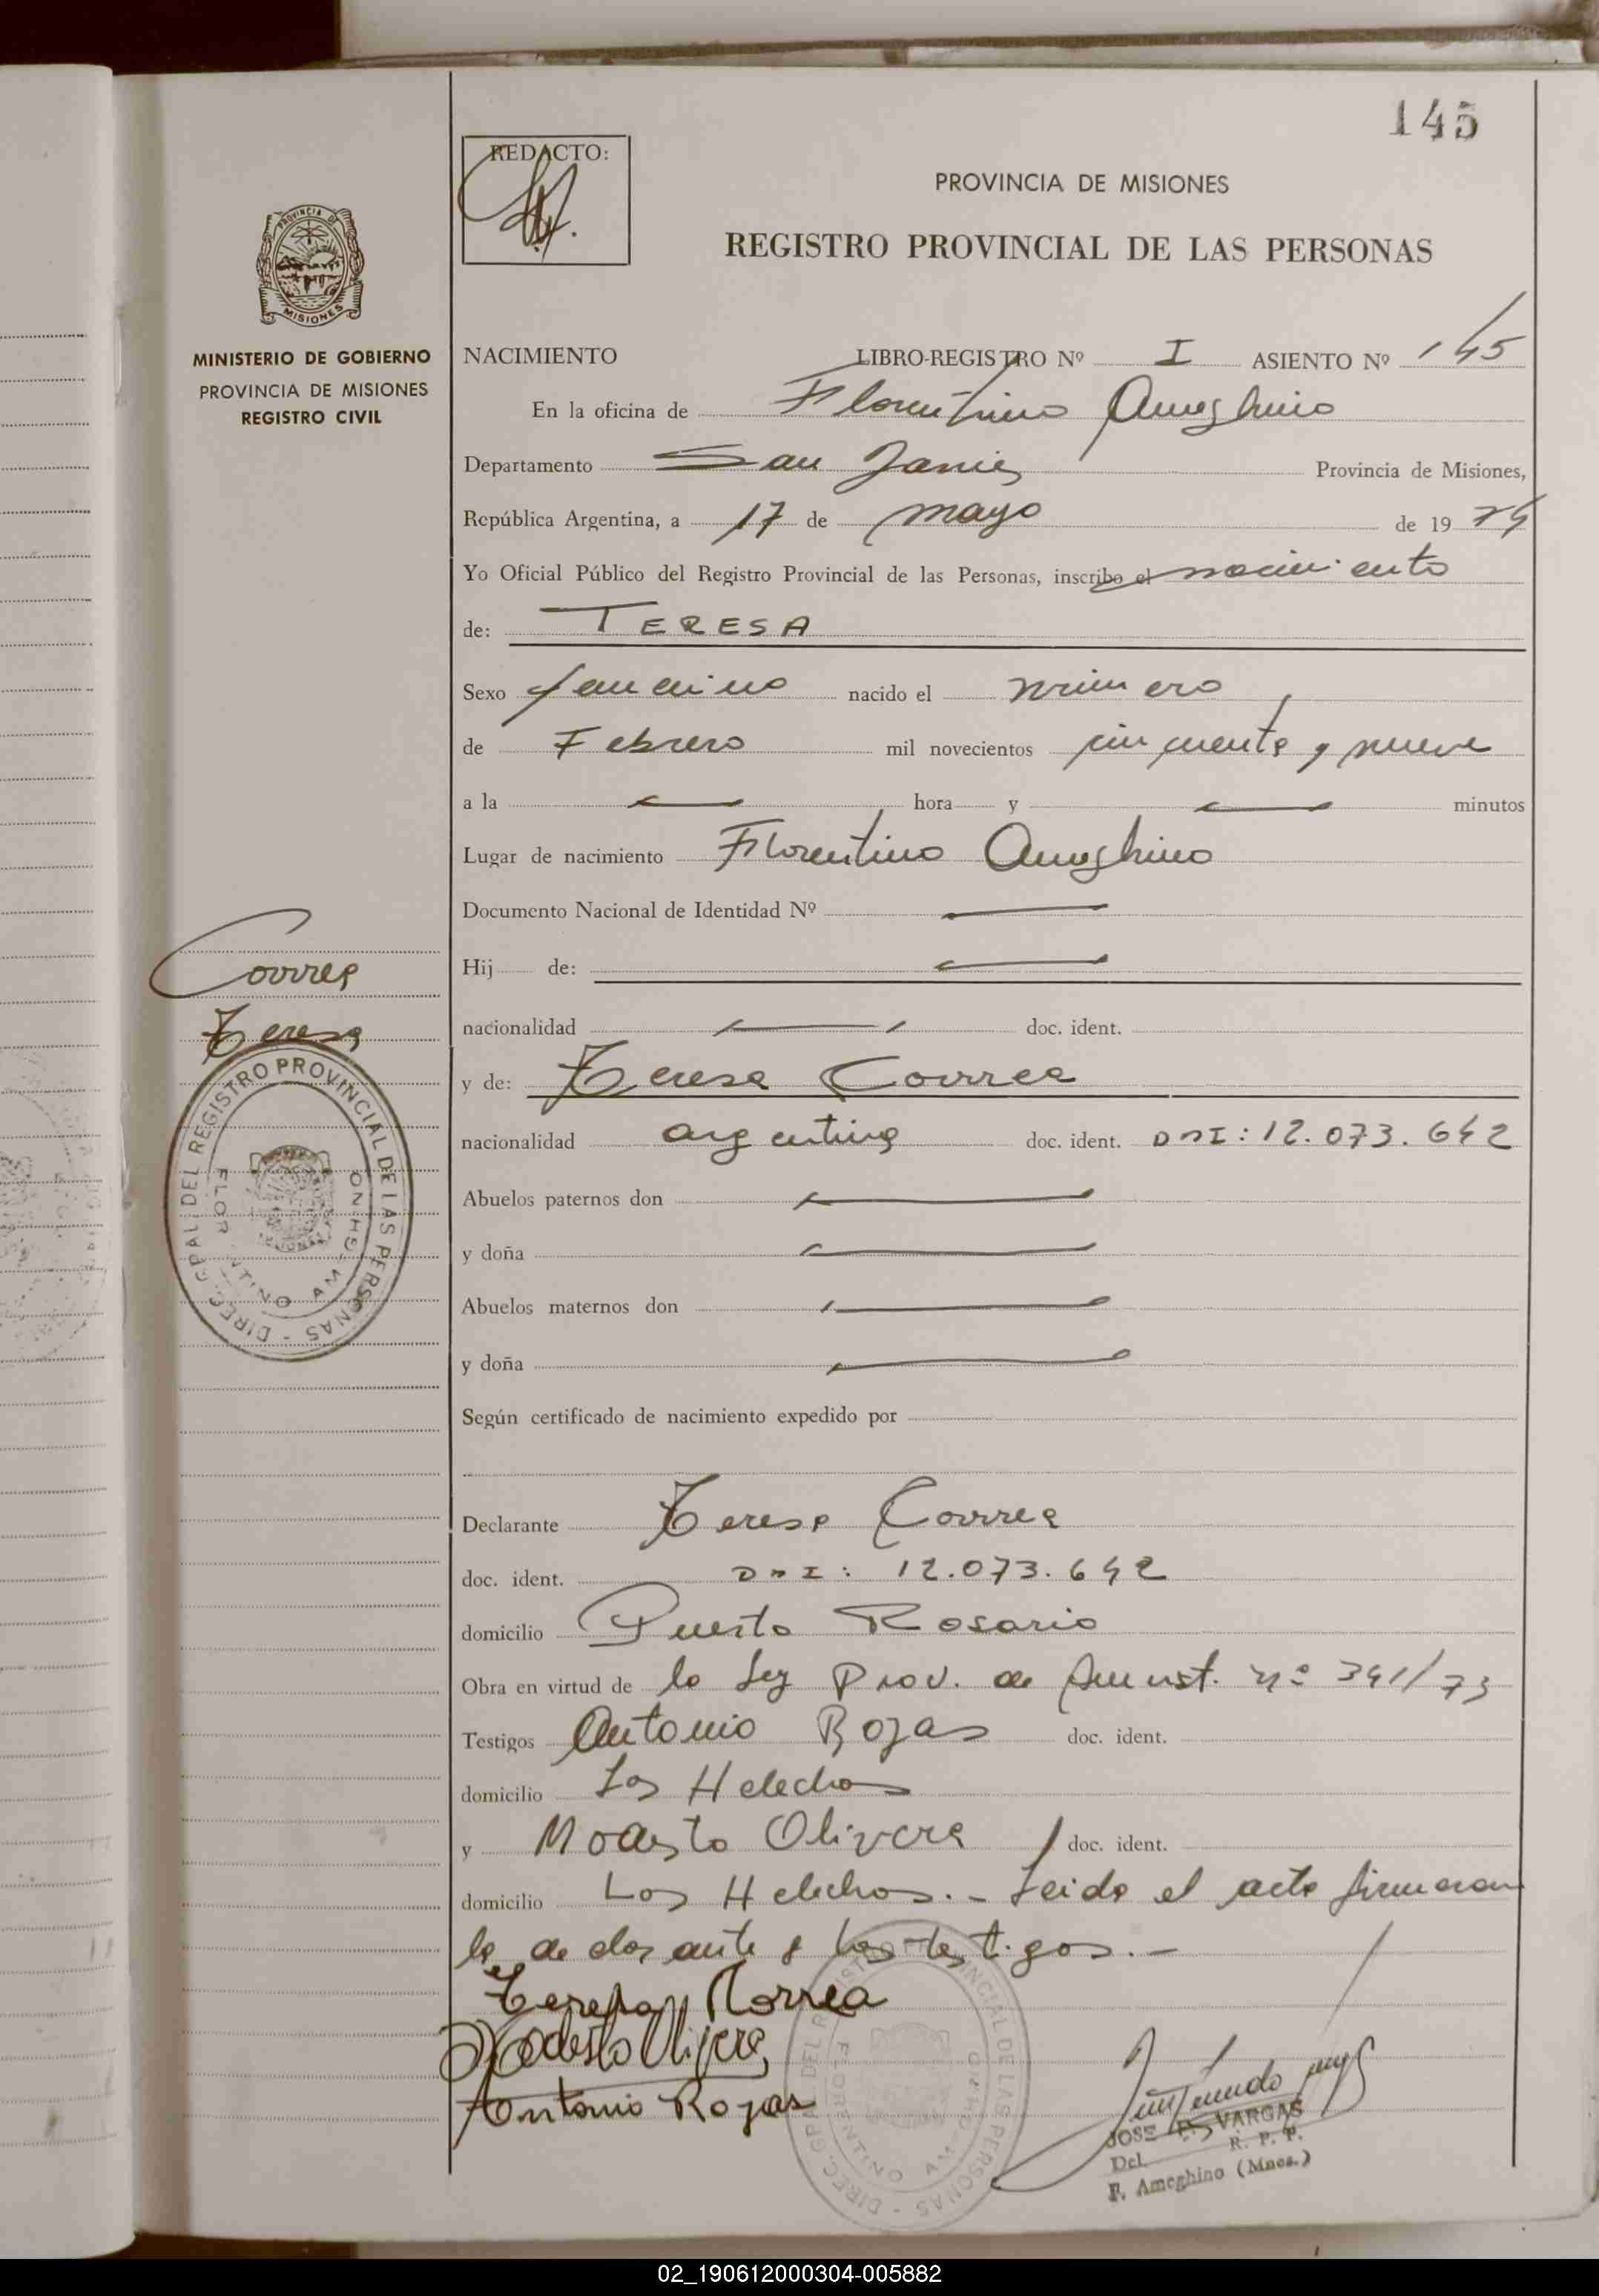 145
REDACTO:
PROVINCIA DE MISIONES
REGISTRO PROVINCIAL DE LAS PERSONAS
PROVINCIA DE
MISIONES
MINISTERIO DE GOBIERNO
PROVINCIA DE MISIONES
REGISTRO CIVIL
NACIMIENTO LIBRO-REGISTRO Nº I ASIENTO Nº 145
En la oficina de Florentino Ameghino
Departamento San Javier Provincia de Misiones,
República Argentina, a 17 de mayo de 19 74
Yo Oficial Público del Registro Provincial de las Personas, inscribo el nacimiento
de: TERESA
Sexo femenino nacido el primero
de Febrero mil novecientos cincuenta y nueve
a la hora y minutos
Lugar de nacimiento Florentino Ameghino
Documento Nacional de Identidad Nº
Correa
Hij de:
Teresa
nacionalidad doc. ident.
y de: Teresa Correa
nacionalidad argentina doc. ident. DNI: 12.073.642
DIREC. GRAL. DEL REGISTRO PROVINCIAL DE LAS PERSONAS -
FLORENTINO AMEGHINO
Abuelos paternos don
y doña
Abuelos maternos don
y doña
Según certificado de nacimiento expedido por
Declarante Teresa Correa
doc. ident. DNI: 12.073.642
domicilio Puerto Rosario
Obra en virtud de la Ley Prov. de Amnist. nº 341/73
Testigos Antonio Rojas doc. ident.
domicilio Los Helechos
y Modesto Olivera doc. ident.
domicilio Los Helechos. - Leida el acta firmaron
la declarante y los testigos. -
Teresa Correa
Modesto Olivera
Antonio Rojas
DIREC. GRAL. DEL REGISTRO PROVINCIAL DE LAS PERSONAS -
FLORENTINO AMEGHINO
JOSE F. VARGAS
Del. R. P. P.
F. Ameghino (Mnes.)
02_190612000304-005882